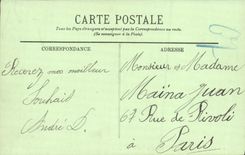 CARTE POSTALE
Tous les Pays étrangers n'acceptent pas la Correspondance au recto.
(Se renseigner à la Poste)
CORRESPONDANCE
ADRESSE
Recevez mes meilleur
Souhait
André D.
Monsieur Madame
Maïna Juan
67 Rue de Rivoli
à
Paris